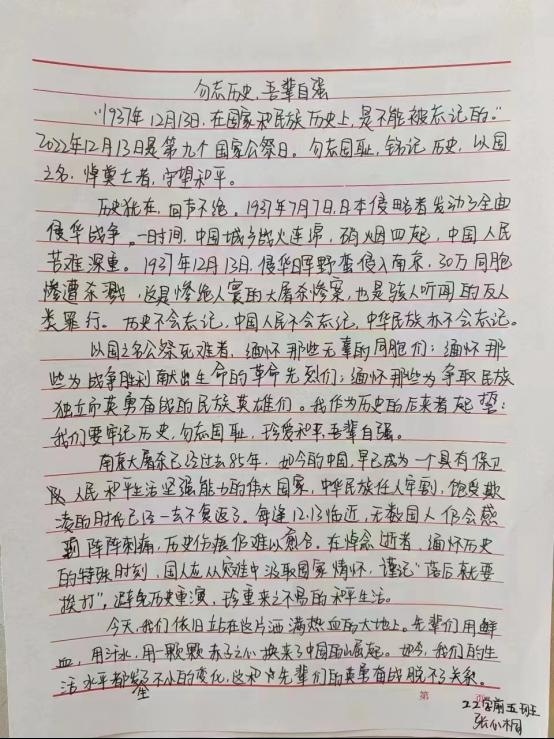 勿忘历史，吾辈自强
“1937年12月13日，在国家和民族历史上，是不能被忘记的。”
2022年12月13日是第九个国家公祭日。勿忘国耻，铭记历史，以国
之名，悼奠亡者，守望和平。
历史犹在，回声不绝。1937年7月7日，日本侵略者发动了全面
侵华战争。一时间，中国城乡战火连绵，硝烟四起，中国人民
苦难深重。1937年12月13日，侵华日军野蛮侵入南京，30万同胞
惨遭杀戮，这是惨绝人寰的大屠杀惨案，也是骇人听闻的反人
类罪行。历史不会忘记，中国人民不会忘记，中华民族亦不会忘记。
以国之名公祭死难者，缅怀那些无辜的同胞们；缅怀那
些为战争胜利献出生命的革命先烈们；缅怀那些为争取民族
独立而英勇奋战的民族英雄们。我作为历史的后来者起誓：
我们要牢记历史，勿忘国耻，珍爱和平，吾辈自强。
南京大屠杀已经过去85年，如今的中国，早已成为一个具有保卫
人民和平生活坚强能力的伟大国家，中华民族任人宰割，饱受欺
凌的时代已经一去不复返了。每逢12.13临近，无数国人仍会感
到阵阵刺痛，历史伤痕仍难以愈合。在悼念逝者，缅怀历史
的特殊时刻，国人应从灾难中汲取国家情怀，谨记“落后就要
挨打”，避免历史重演，珍重来之不易的和平生活。
今天，我们依旧站在这片洒满热血的大地上。先辈们用鲜
血，用汗水，用一颗颗赤子之心换来了中国的崛起。如今，我们的生
活水平都发生了不小的变化，这和先辈们的英勇奋战脱不了关系。
第 页
22学前五班
张心桐